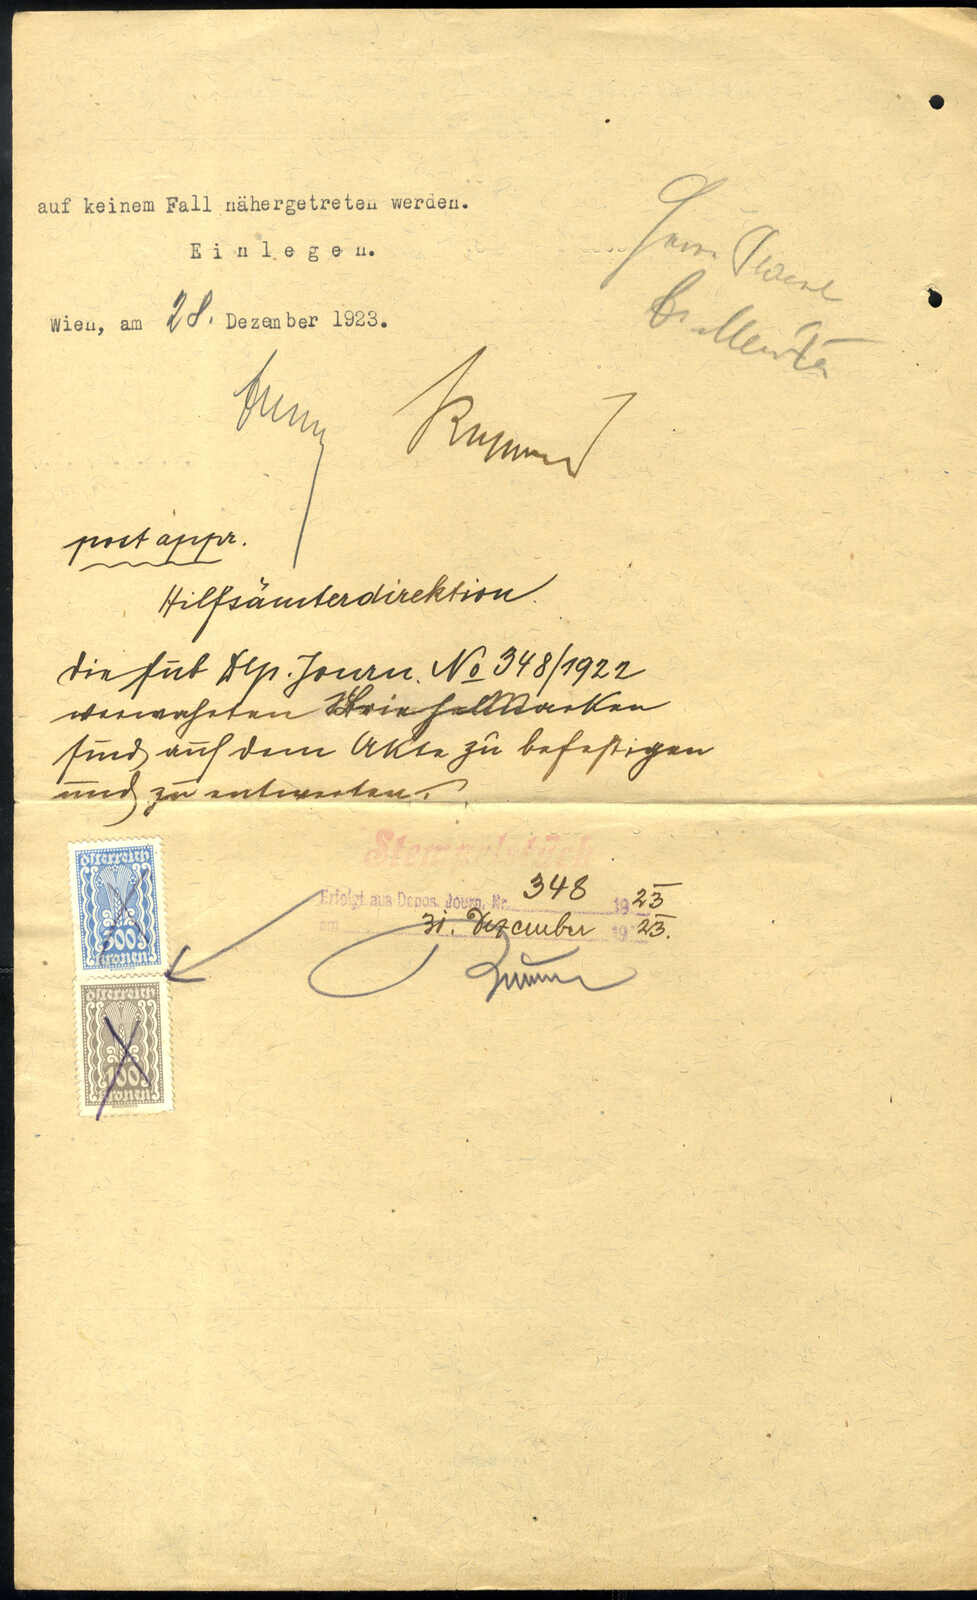 auf keinem Fall nähergetreten werden.
Einlegen.
Wien, am 28. Dezember 1923.
Herrn
post appr.
Hilfsämterdirektion.
die sub Dep. Journ. No 348/1922
verwahrten Briefmarken
sind auf dem Akte zu befestigen
und zu entwerten.
Österreich
300
Kronen
Erfolgt aus Depos. Journ. Nr. 348 1923
am 31. Dezember 1923.
Österreich
100
Kronen